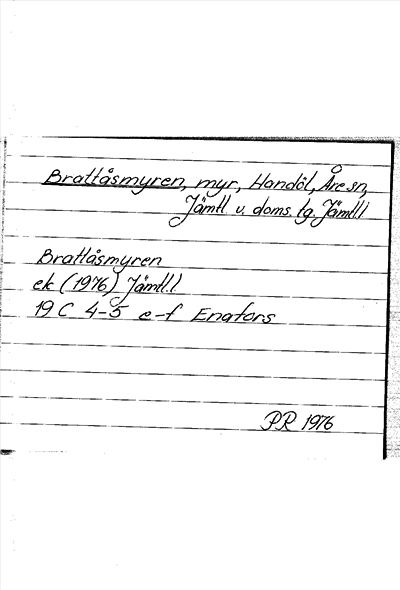 Brattåsmyren, myr, Handöl, Åre sn,
Jämtl. v. doms. tg. Jämtl.l
Brattåsmyren
ek (1976) Jämtl.l
19 C 4-5 e-f Enafors
PR 1976